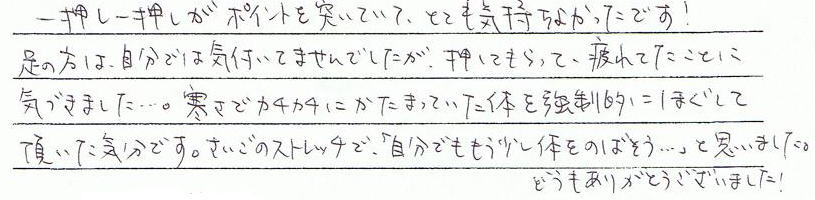 一押し一押しがポイントを突いていて、とても気持ちよかったです！
足の方は、自分では気付いてませんでしたが、押してもらって、疲れてたことに
気づきました…。寒さでカチカチにかたまっていた体を強制的にほぐして
頂いた気分です。さいごのストレッチで、「自分でももう少し体をのばそう…」と思いました。
どうもありがとうございました！